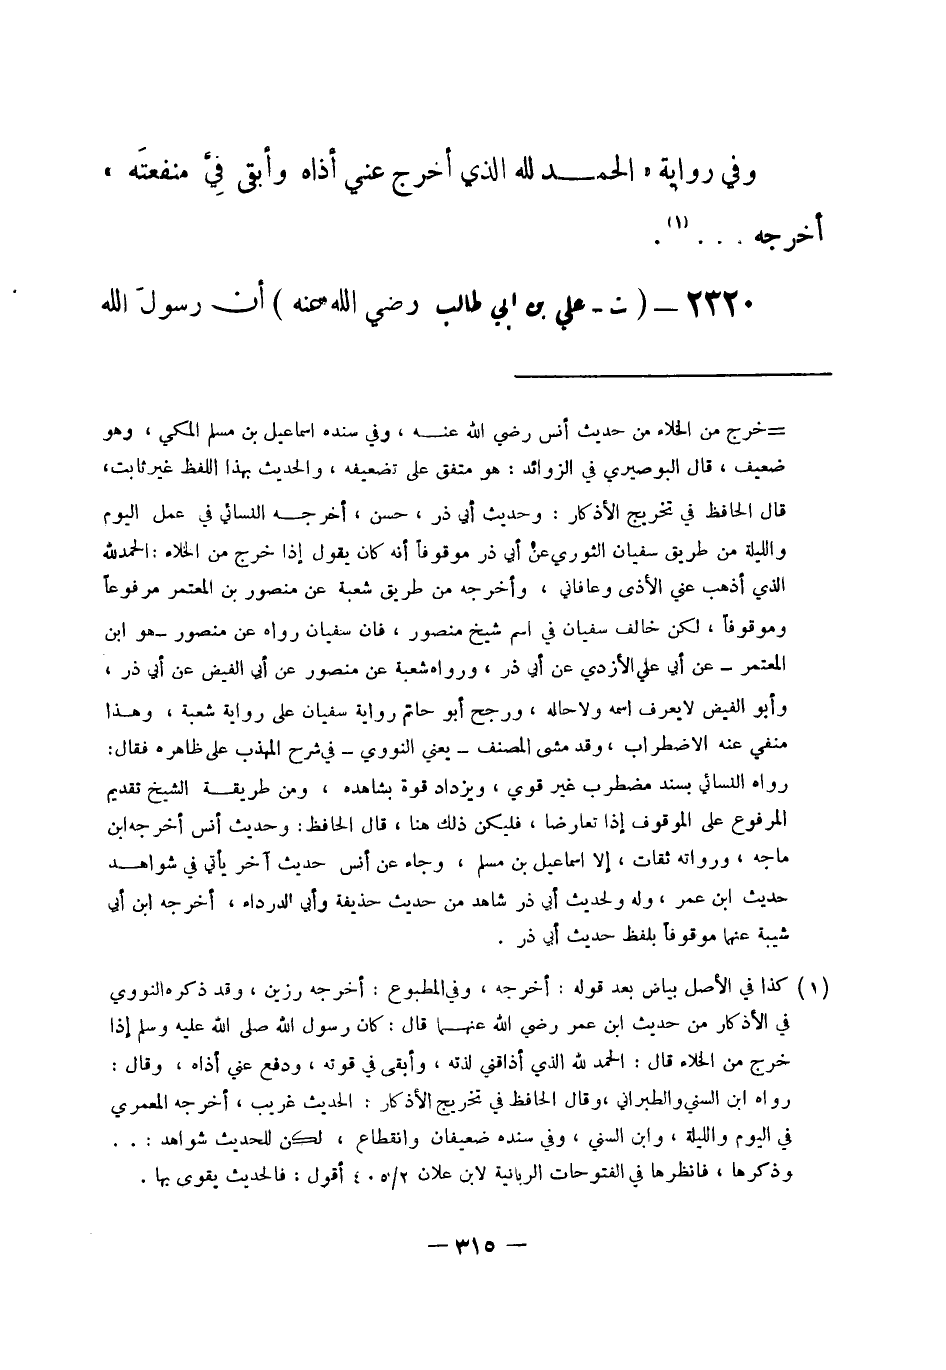 وفي رواية « الحمـــد لله الذي أخرج عني أذاه وأبقى فِيَّ منفعتَه »
أخرجه . . . (١).
٢٣٢٠ – ( ت - علي بن ابي طالب رضي الله عنه ) أن رسولَ الله
= خرج من الخلاء من حديث أنس رضي الله عنـــه ، وفي سنده اسماعيل بن مسلم المكي ، وهو
ضعيف ، قال البوصيري في الزوائد : هو متفق على تضعيفه ، والحديث بهذا اللفظ غير ثابت،
قال الحافظ في تخريج الأذكار : وحديث أبي ذر ، حسن ، أخرجـــه النسائي في عمل اليوم
والليلة من طريق سفيان الثوري عن أبي ذر موقوفاً أنه كان يقول إذا خرج من الخلاء : الحمدلله
الذي أذهب عني الأذى وعافاني ، وأخرجه من طريق شعبة عن منصور بن المعتمر مرفوعاً
وموقوفاً ، لكن خالف سفيان في اسم شيخ منصور ، فان سفيان رواه عن منصور – هو ابن
المعتمر – عن أبي علي الأزدي عن أبي ذر ، ورواه شعبة عن منصور عن أبي الفيض عن أبي ذر ،
وأبو الفيض لايعرف اسمه ولاحاله ، ورجح أبو حاتم رواية سفيان على رواية شعبة ، وهـذا
منفي عنه الاضطراب ، وقد مشى المصنف – يعني النووي – في شرح المهذب على ظاهره فقال:
رواه النسائي بسند مضطرب غير قوي ، ويزداد قوة بشاهده ، ومن طريقـــة الشيخ تقديم
المرفوع على الموقوف إذا تعارضا ، فليكن ذلك هنا ، قال الحافظ: وحديث أنس أخرجه ابن
ماجه ، ورواته ثقات ، إلا اسماعيل بن مسلم ، وجاء عن أنس حديث آخر يأتي في شواهـــد
حديث ابن عمر ، وله ولحديث أبي ذر شاهد من حديث حذيفة وأبي الدرداء ، أخرجه ابن أبي
شيبة عنها موقوفاً بلفظ حديث أبي ذر .
(١) كذا في الأصل بياض بعد قوله : أخرجه ، وفي المطبوع : أخرجه رزين ، وقد ذكره النووي
في الأذكار من حديث ابن عمر رضي الله عنهـــا قال : كان رسول الله صلى الله عليه وسلم إذا
خرج من الخلاء قال : الحمد لله الذي أذاقني لذته ، وأبقى في قوته ، ودفع عني أذاه ، وقال :
رواه ابن السني والطبراني ،وقال الحافظ في تخريج الأذكار : الحديث غريب ، أخرجه المعمري
في اليوم والليلة ، وابن السني ، وفي سنده ضعيفان وانقطاع ، لكن للحديث شواهد : . .
وذكرها ، فانظرها في الفتوحات الربانية لابن علان ٤٠٥/٢ أقول : فالحديث يقوى بها .
– ٣١٥ –